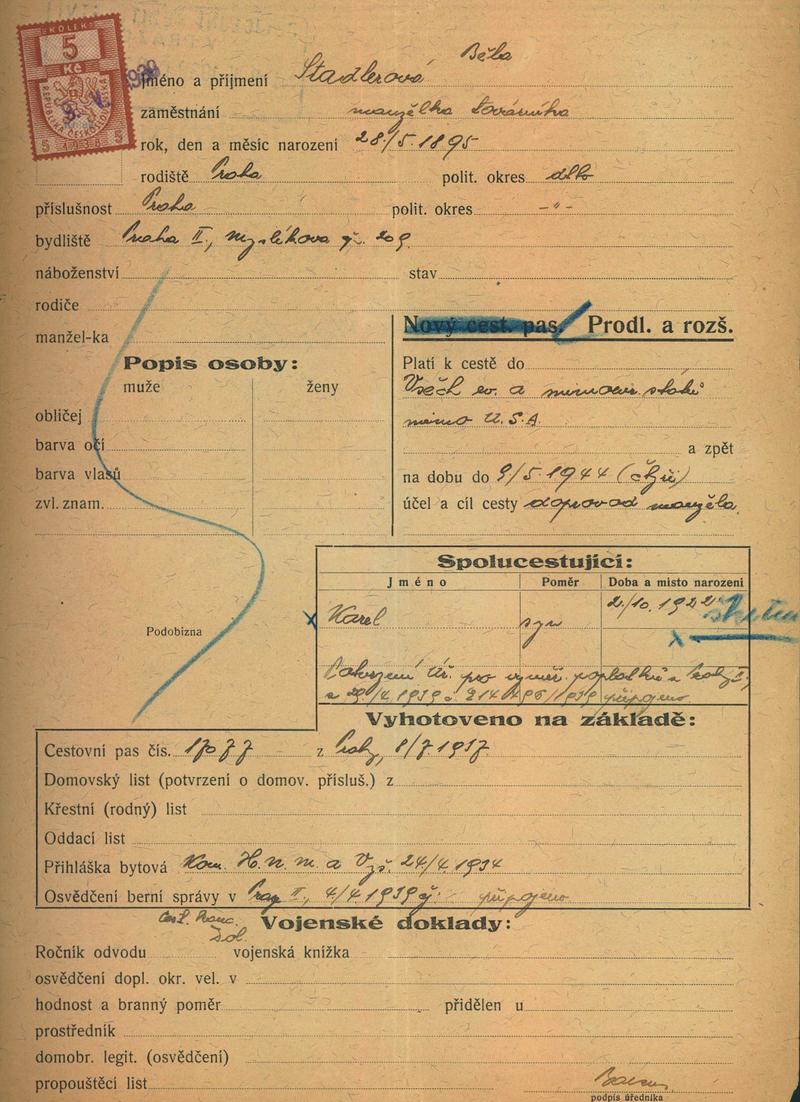 KOLEK
5
Kč
REPUBLIKA ČESKOSLOVENSKÁ
5 1938 5
Jméno a příjmení Stadlerová Běla
zaměstnání manželka továrníka
rok, den a měsíc narození 28/5. 1895
rodiště Praha polit. okres dtto
příslušnost Praha polit. okres -"-
bydliště Praha II., Myslíkova č. 209
náboženství stav
rodiče
manžel-ka
Nový cest. pas. Prodl. a rozš.
Popis osoby:
muže ženy
obličej
barva očí
barva vlasů
zvl. znam.
Platí k cestě do
Všech ev. a mimoev. států
mimo U.S.A.
a zpět
na dobu do 9/5. 1944
účel a cíl cesty doprovod manžela
Spolucestující:
Jméno Poměr Doba a místo narození
Karel syn 2/10. 1922
Podobizna
Potvrzení Úř. pro vyměř. poplatků v
1939 připojeno
Vyhotoveno na základě:
Cestovní pas čís. z 1/7. 1937
Domovský list (potvrzení o domov. přísluš.) z
Křestní (rodný) list
Oddací list
Přihláška bytová Kom. H. n. m. a 24/4 1934
Osvědčení berní správy v II., 4/4 1939 připojeno
Vojenské doklady:
Ročník odvodu vojenská knížka
osvědčení dopl. okr. vel. v
hodnost a branný poměr přidělen u
prostředník
domobr. legit. (osvědčení)
propouštěcí list
podpis úředníka